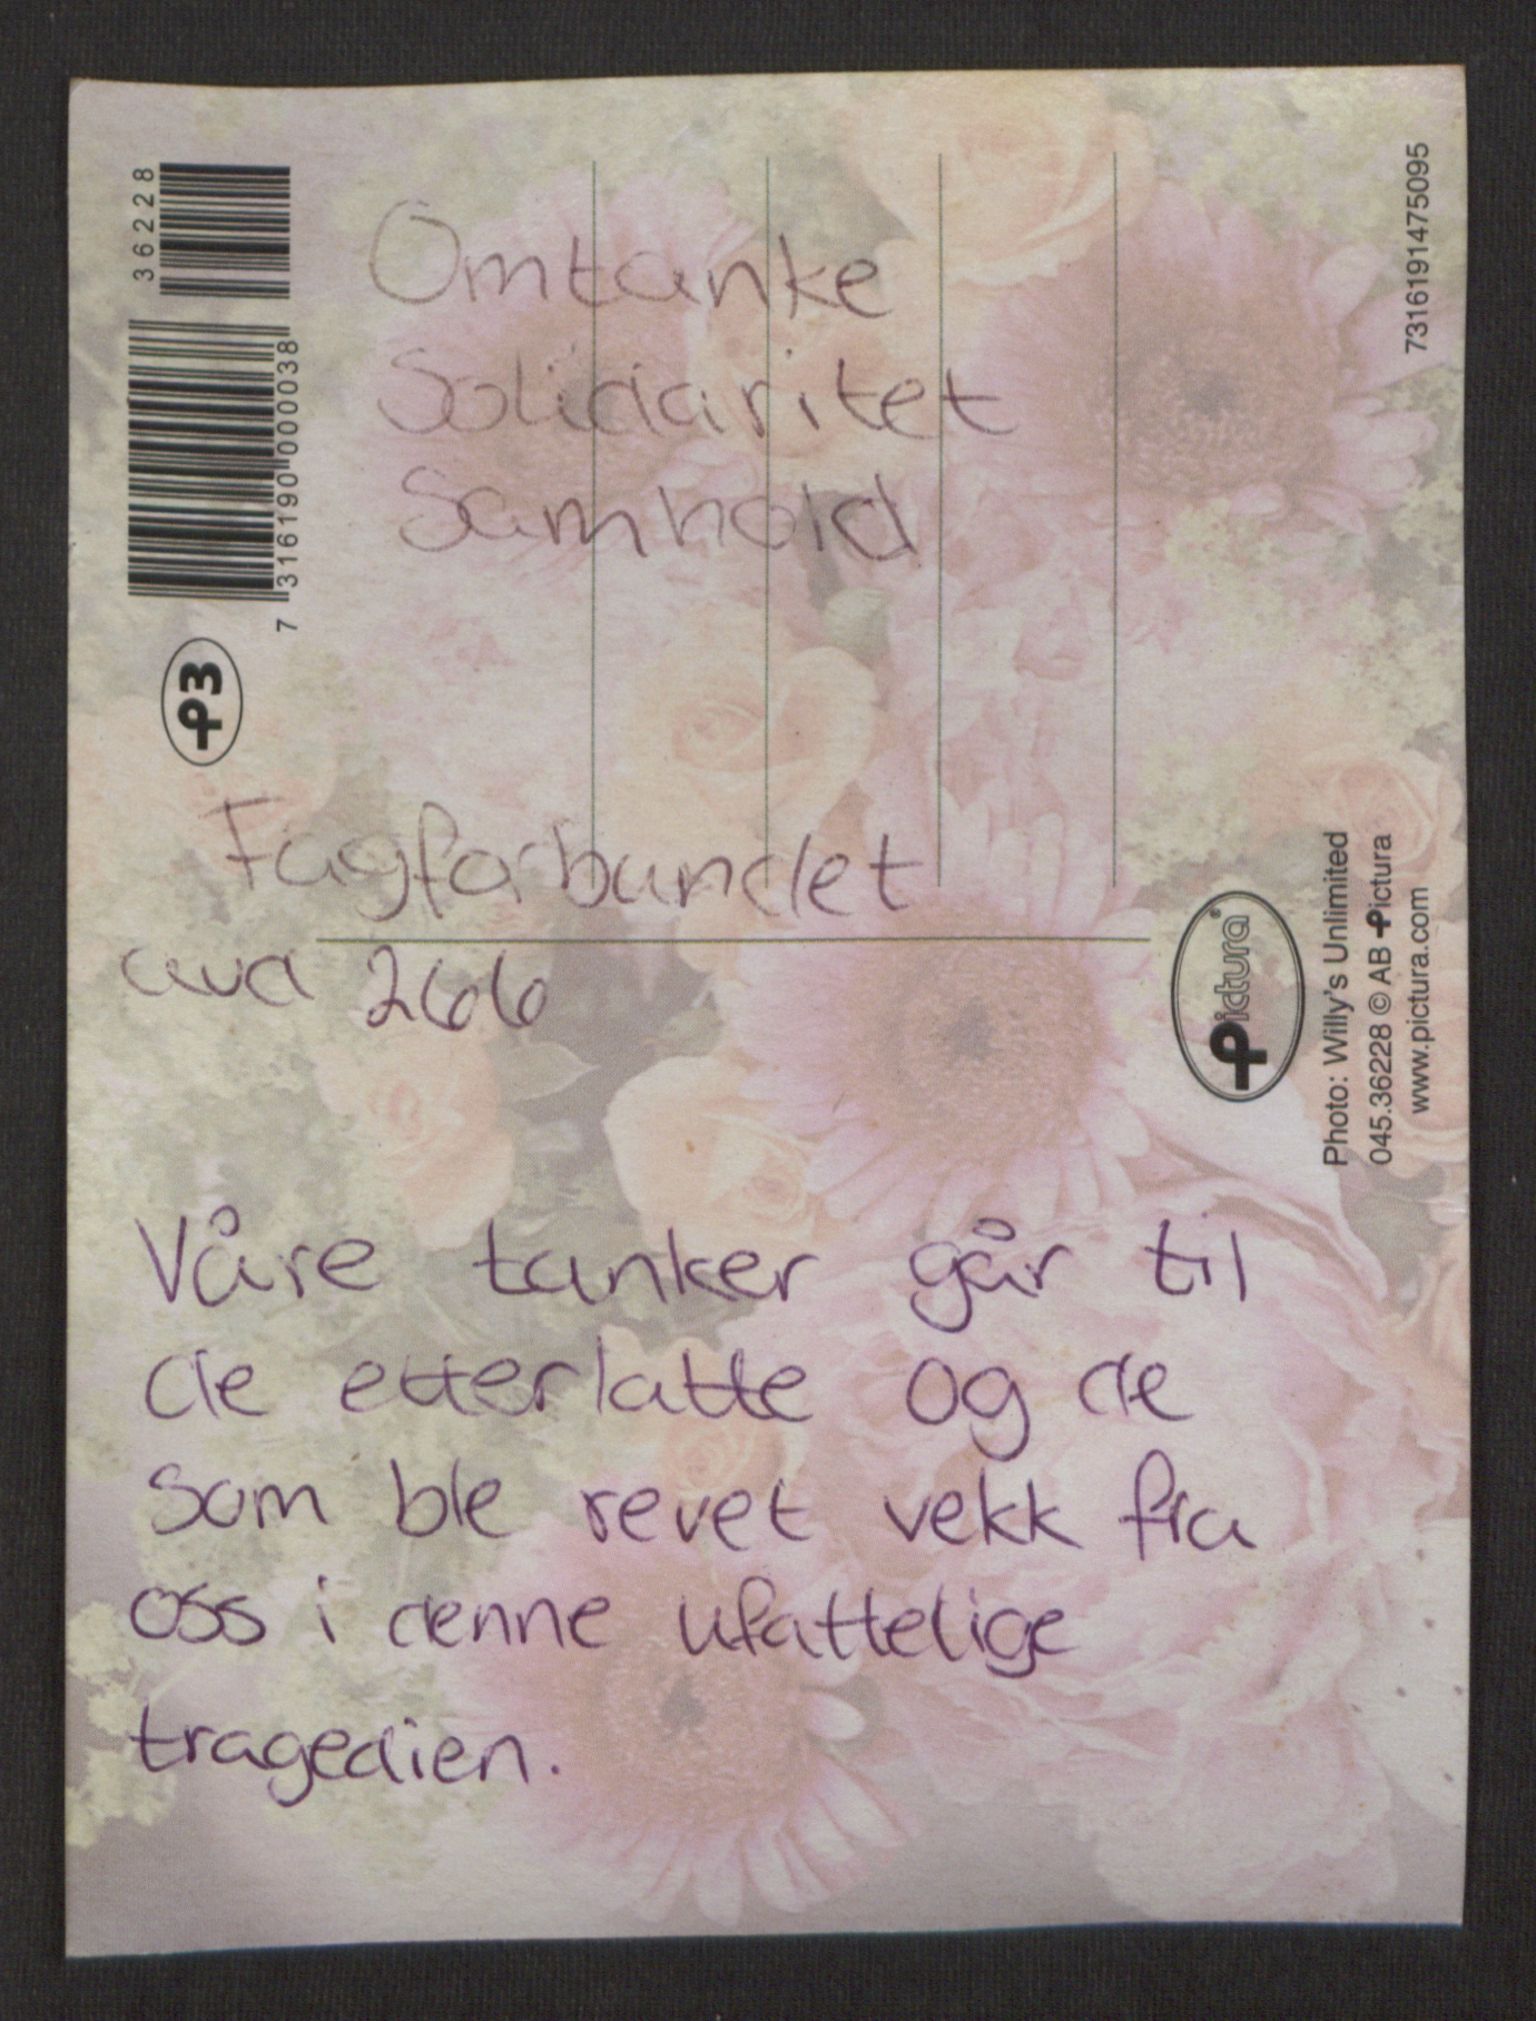 Omtanke
Solidaritet
Samhold
Fagforbundet
avd 266
Våre tanker går til
de etterlatte og de
som ble revet vekk fra
oss i denne ufattelige
tragedien.
36228
7 316190 000038
P3
7316191475095
Pictura®
Photo: Willy's Unlimited
045.36228 © AB Pictura
www.pictura.com